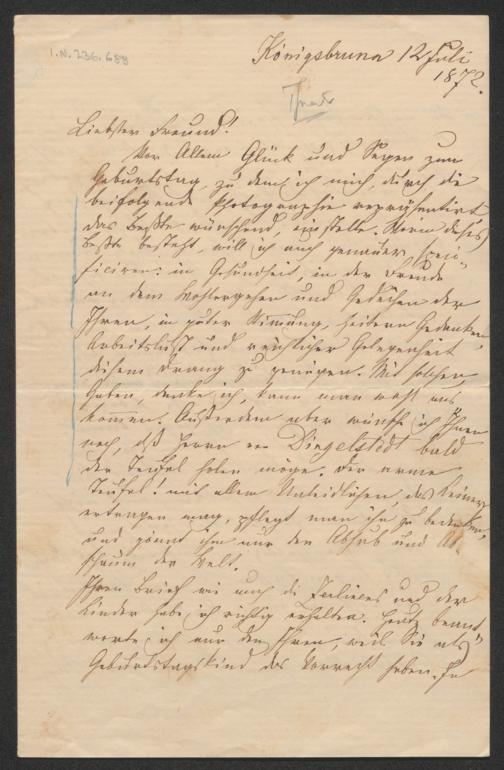 I.N. 236.688
Königsbrunn 12 Juli
1872.
Liebster Freund!
Vor Allem Glück und Segen zum
Geburtstag, zu dem ich mich, durch die
beifolgende Photographie repräsentirt
das Beßte wünschend, einstelle. Worin dieses
Beßte besteht, will ich auch genauer speci„
ficiren: in Gesundheit, in der Freude
an dem Wohlergehen und Gedeihen der
Ihren, in guter Stimmung, heitern Gedanken,
Arbeitslust und reichlicher Gelegenheit
diesem Drang zu genügen. Mit solchen
Gaben, denke ich, kann man wohl aus
kommen. Außerdem aber wünsche ich Ihnen
noch, daß Herrn von Dingelstedt bald
der Teufel holen möge. Der arme
Teufel! mit allem Unleidlichen, das Keiner
ertragen mag, pflegt man ihn zu bedenken,
und gönnt ihm nur den Abhub und Ab„
schaum der Welt.
Ihren Brief wie auch die und der
Kinder habe ich richtig erhalten. Heute beant„
worte ich nur den Ihren, weil Sie als
Geburtstagskind das Vorrecht haben. In